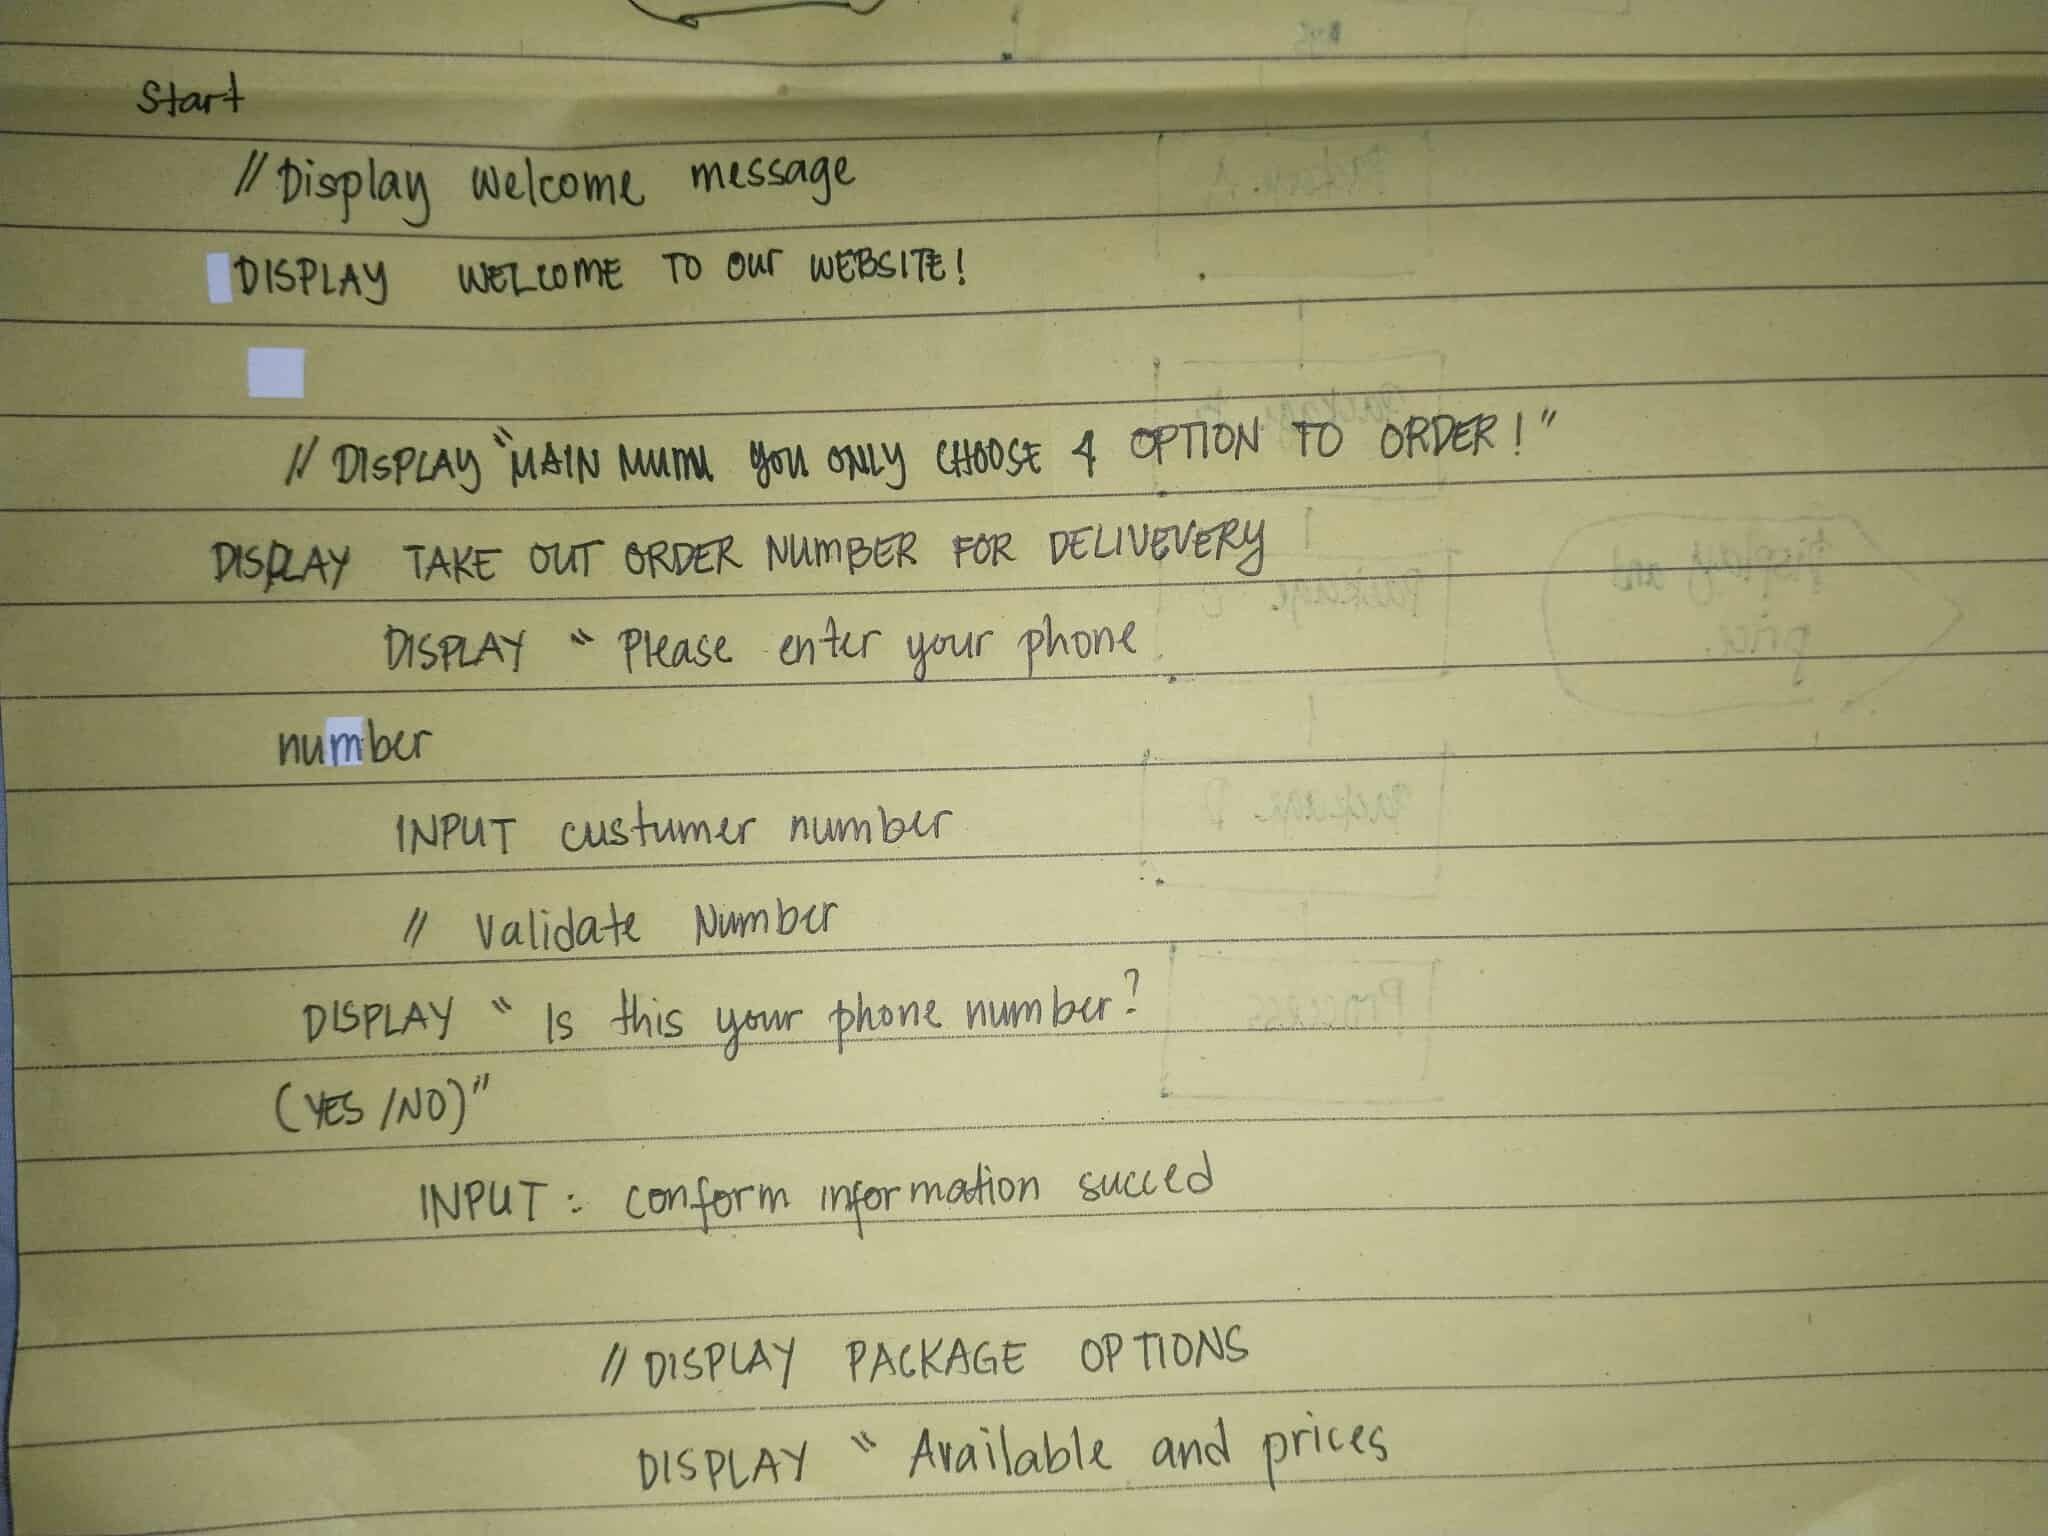 Start
// Display Welcome message
DISPLAY WELCOME TO our WEBSITE!
// DISPLAY "MAIN MUMU you ONLY CHOOSE 4 OPTION TO ORDER!"
DISPLAY TAKE OUT ORDER NUMBER FOR DELIVEVERY
DISPLAY " Please enter your phone
number
INPUT custumer number
// Validate Number
DISPLAY " Is this your phone number?
(YES/NO)"
INPUT : conform information succed
// DISPLAY PACKAGE OPTIONS
DISPLAY " Available and prices